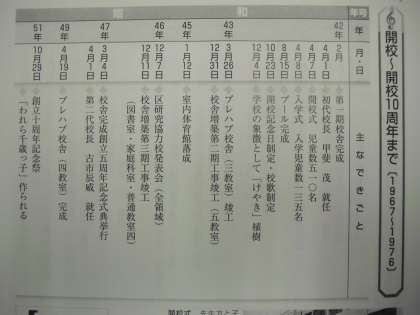 開校～開校10周年まで（1967～1976）
年号 年 月・日 主なできごと
昭和
42年 2月 第一期校舎完成
4月1日 初代校長 甲斐 茂 就任
4月8日 開校式 児童数五一〇名
入学式 入学児童数一三五名
8月15日 プール完成
10月23日 開校記念日制定・校歌制定
12月4日 学校の象徴として「けやき」植樹
43年 3月26日 プレハブ校舎（三教室）竣工
12月31日 校舎増築第二期工事竣工（五教室）
45年 1月12日 室内体育館落成
46年 12月7日 区研究協力校発表会（全領域）
12月11日 校舎増築第三期工事竣工
（図書室・家庭科室・普通教室四）
47年 3月4日 校舎完成創立五周年記念式典挙行
4月1日 第二代校長 古市辰威 就任
49年 4月19日 プレハブ校舎（四教室）完成
51年 10月29日 創立十周年記念祭
「われら千歳っ子」作られる
開校式